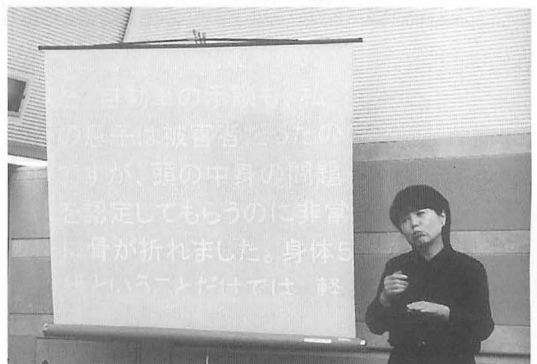 自動車の手帳も、私
の息子は被害者だったの
ですが、頭の中身の問題
を認定してもらうのに非常
に骨が折れました。身体5
級ということだけでは 軽